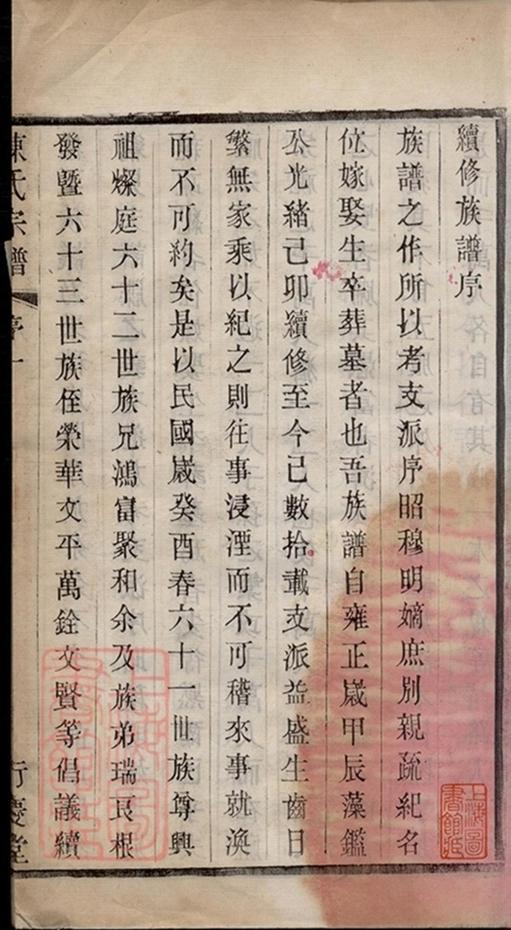 續修族譜序
族譜之作所以考支派序昭穆明嫡庶別親疏紀名
位嫁娶生卒葬墓者也吾族譜自雍正歲甲辰藻鑑
公光緒己卯續修至今已數拾載支派益盛生齒日
繁無家乘以紀之則往事浸湮而不可稽來事就渙
而不可約矣是以民國歲癸酉春六十一世族尊興
祖燦庭六十二世族兄鴻富聚和余及族弟瑞良根
發暨六十三世族侄榮華文平萬銓文賢等倡議續
陳氏宗譜 序一 行慶堂
上海圖書館藏